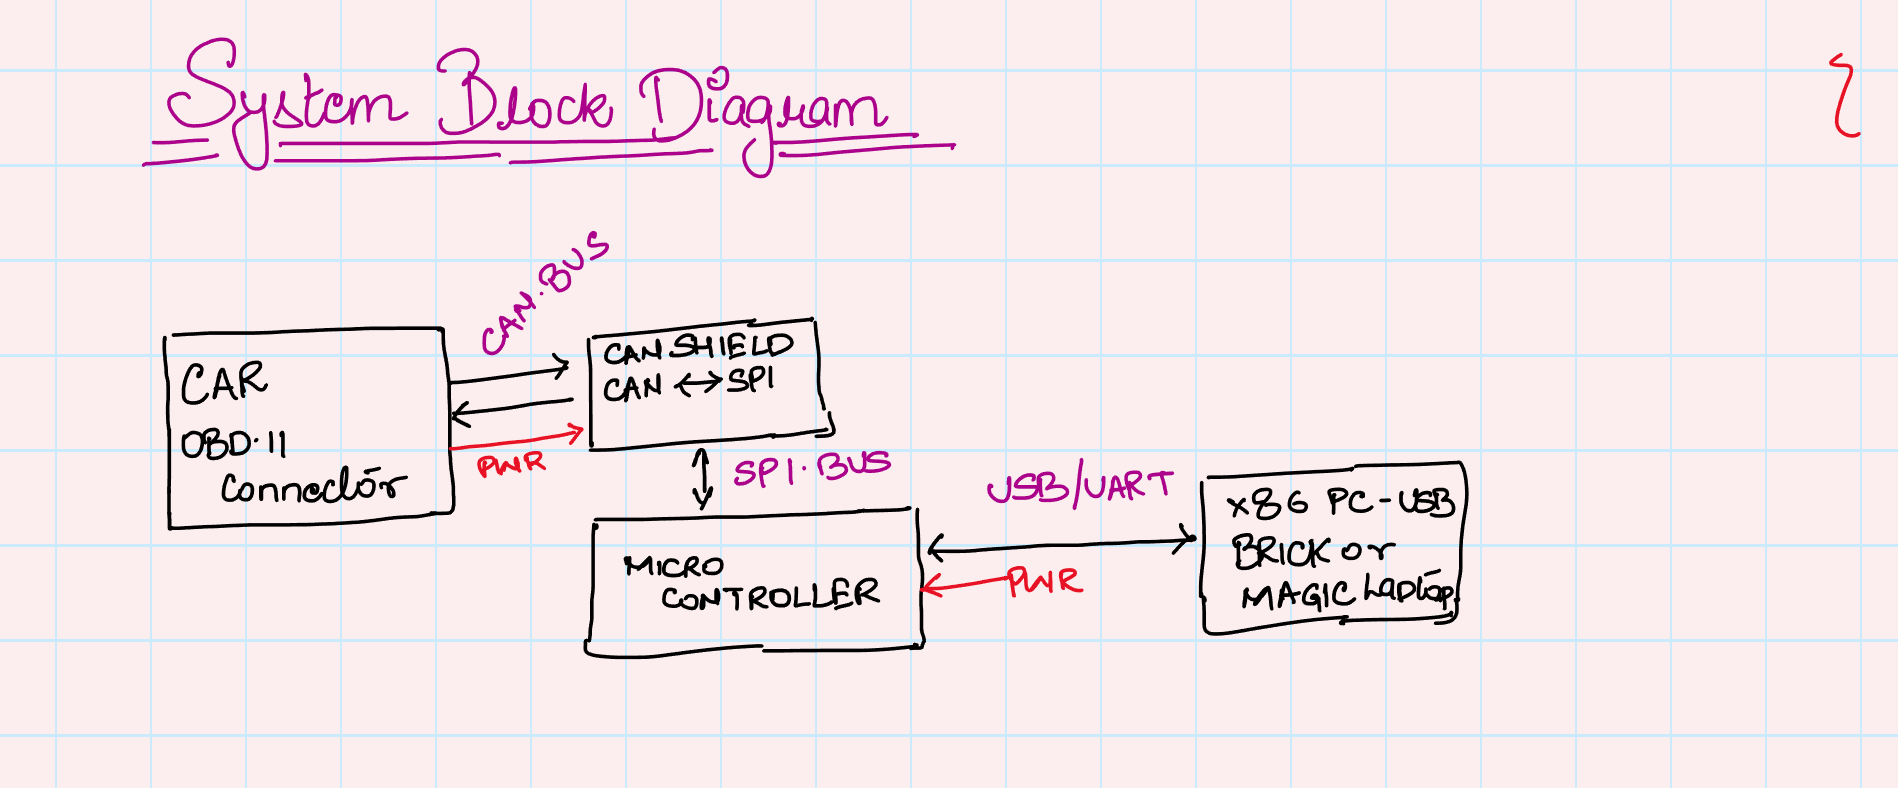 System Block Diagram
CAN·BUS
CAR
OBD·II
Connector
PWR
CAN SHIELD
CAN ↔ SPI
SPI·BUS
MICRO
CONTROLLER
USB/UART
PWR
x86 PC-USB
BRICK or
MAGIC Laptop